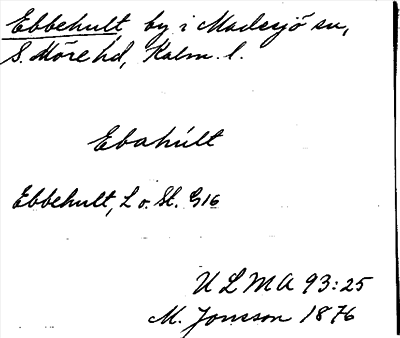 Ebbehult, by i Madesjö sn,
S. Möre hd, Kalm. l.
Ebahúlt
Ebbehult, L o. St. G16
ULMA 93:25
M. Jonsson 1876